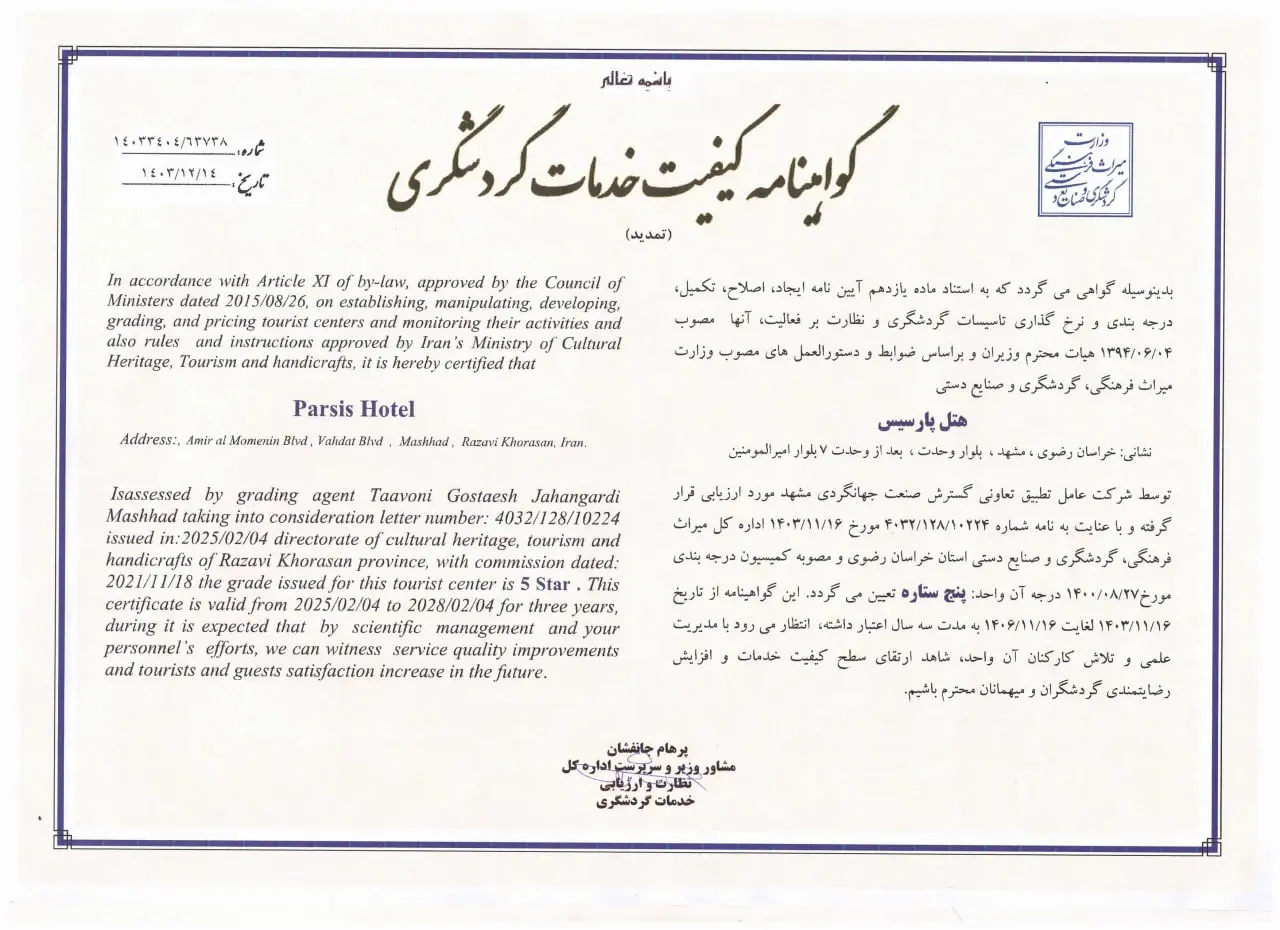 باسمه تعالی
گواهینامه کیفیت خدمات گردشگری
(تمدید)
وزارت
میراث فرهنگی
گردشگری و صنایع دستی
شماره: ۱٤۰۳۳٤۰٤/٦۳۷۳۸
تاریخ: ۱٤۰۳/۱۲/۱٤
بدینوسیله گواهی می گردد که به استناد ماده یازدهم آیین نامه ایجاد، اصلاح، تکمیل،
درجه بندی و نرخ گذاری تاسیسات گردشگری و نظارت بر فعالیت، آنها مصوب
۱۳۹۴/۰۶/۰۴ هیات محترم وزیران و براساس ضوابط و دستورالعمل های مصوب وزارت
میراث فرهنگی، گردشگری و صنایع دستی
هتل پارسیس
نشانی: خراسان رضوی ، مشهد ، بلوار وحدت ، بعد از وحدت ۷ بلوار امیرالمومنین
توسط شرکت عامل تطبیق تعاونی گسترش صنعت جهانگردی مشهد مورد ارزیابی قرار
گرفته و با عنایت به نامه شماره ۴۰۳۲/۱۲۸/۱۰۲۲۴ مورخ ۱۴۰۳/۱۱/۱۶ اداره کل میراث
فرهنگی، گردشگری و صنایع دستی استان خراسان رضوی و مصوبه کمیسیون درجه بندی
مورخ۱۴۰۰/۰۸/۲۷ درجه آن واحد: پنج ستاره تعیین می گردد. این گواهینامه از تاریخ
۱۴۰۳/۱۱/۱۶ لغایت ۱۴۰۶/۱۱/۱۶ به مدت سه سال اعتبار داشته، انتظار می رود با مدیریت
علمی و تلاش کارکنان آن واحد، شاهد ارتقای سطح کیفیت خدمات و افزایش
رضایتمندی گردشگران و میهمانان محترم باشیم.
In accordance with Article XI of by-law, approved by the Council of
Ministers dated 2015/08/26, on establishing, manipulating, developing,
grading, and pricing tourist centers and monitoring their activities and
also rules and instructions approved by Iran's Ministry of Cultural
Heritage, Tourism and handicrafts, it is hereby certified that
Parsis Hotel
Address:, Amir al Momenin Blvd , Vahdat Blvd , Mashhad , Razavi Khorasan, Iran.
Isassessed by grading agent Taavoni Gostaesh Jahangardi
Mashhad taking into consideration letter number: 4032/128/10224
issued in:2025/02/04 directorate of cultural heritage, tourism and
handicrafts of Razavi Khorasan province, with commission dated:
2021/11/18 the grade issued for this tourist center is 5 Star . This
certificate is valid from 2025/02/04 to 2028/02/04 for three years,
during it is expected that by scientific management and your
personnel's efforts, we can witness service quality improvements
and tourists and guests satisfaction increase in the future.
پرهام جانفشان
مشاور وزیر و سرپرست اداره کل
نظارت و ارزیابی
خدمات گردشگری